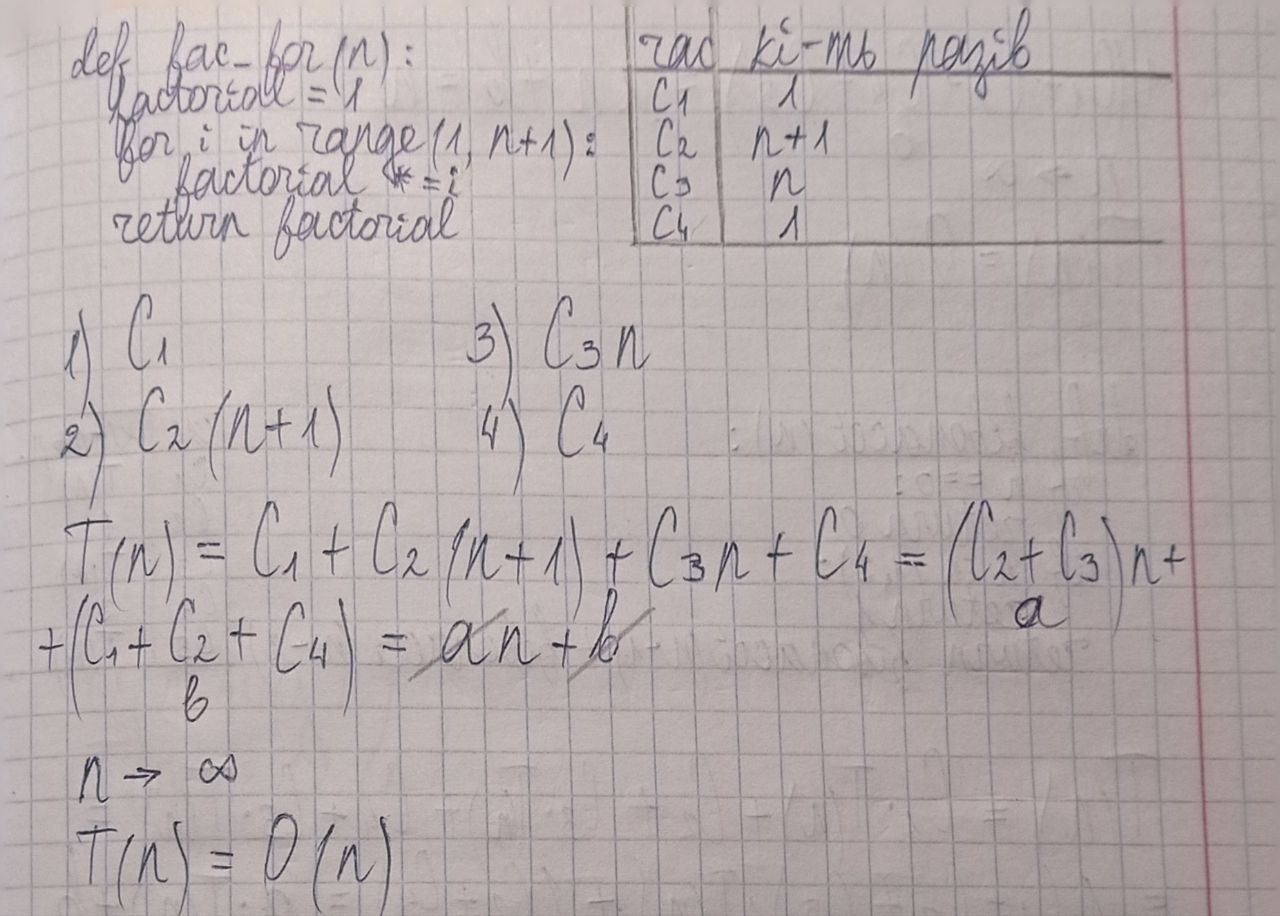 def fac_for(n):
factorial = 1
for i in range(1, n+1):
factorial *= i
return factorial
час кі-ть разів
C1 1
C2 n+1
C3 n
C4 1
1) C1
2) C2 (n+1)
3) C3 n
4) C4
T(n) = C1 + C2 (n+1) + C3 n + C4 = (C2 + C3) n +
a
+ (C1 + C2 + C4) = an + b
b
n → ∞
T(n) = O(n)